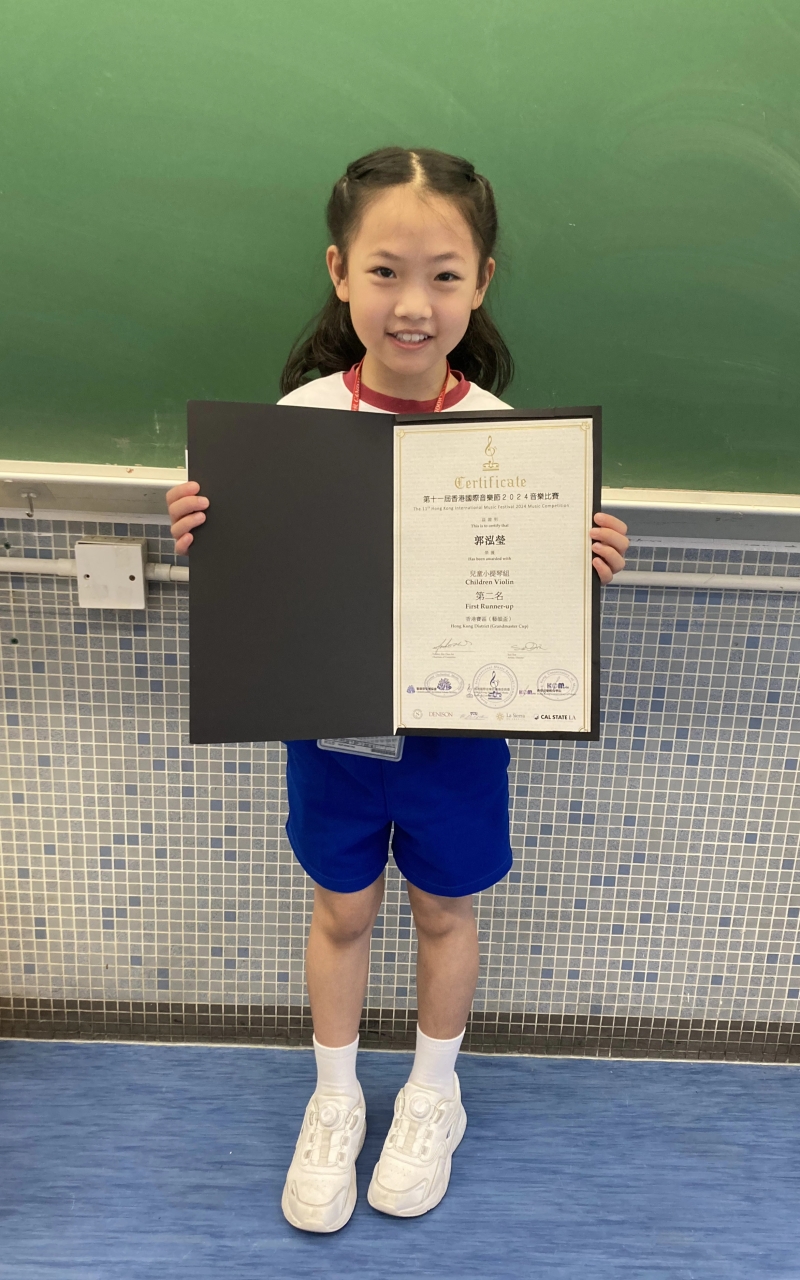 Certificate
第十一屆香港國際音樂節2024音樂比賽
The 11th Hong Kong International Music Festival 2024 Music Competition
This is to certify that
郭泓瑩
Has been awarded with
兒童小提琴組
Children Violin
第二名
First Runner-up
Hong Kong District (Grandmaster Cup)
DENISON
CAL STATE LA